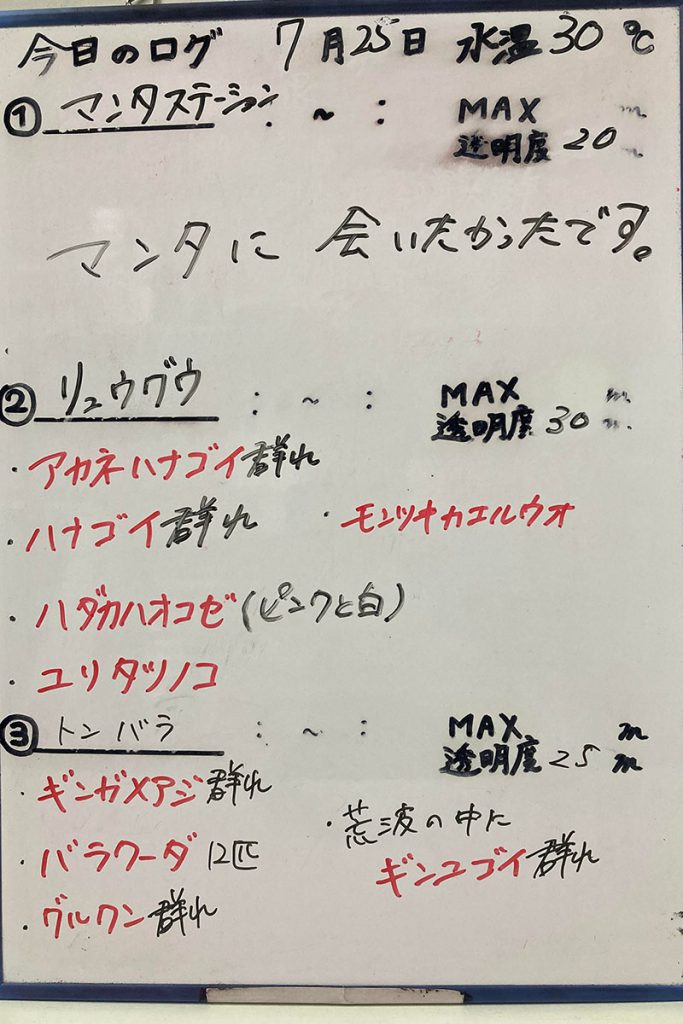 今日のログ 7月25日 水温30℃
① マンタステーション : ~ : MAX m
透明度 20 m
マンタに 会いたかったです。
② リュウグウ : ~ : MAX m
透明度 30 m
・アカネハナゴイ群れ
・ハナゴイ群れ ・モンツキカエルウオ
・ハダカハオコゼ(ピンクと白)
・ユリタツノコ
③ トンバラ : ~ : MAX m
透明度 25 m
・ギンガメアジ群れ
・荒波の中に
ギンユゴイ群れ
・バラクーダ 12匹
・グルクン群れ